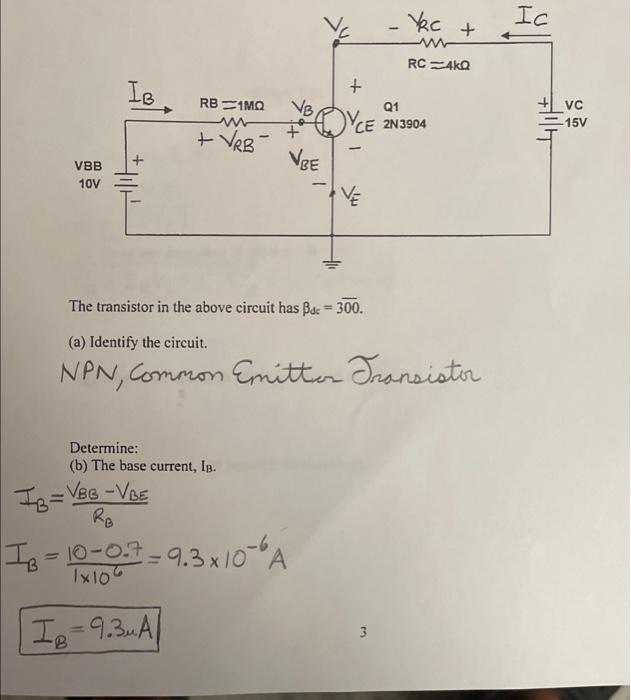 V_C - V_RC + I_C
RC = 4kΩ
I_B RB = 1MΩ V_B + Q1 + VC
V_CE 2N3904 15V
+ V_RB - + V_BE - -
VBB + -
10V -
V_E
The transistor in the above circuit has β_dc = 30̅0̅.
(a) Identify the circuit.
NPN, Common Emitter Transistor
Determine:
(b) The base current, I_B.
I_B = (V_BB - V_BE) / R_B
I_B = (10 - 0.7) / (1×10^6) = 9.3 × 10^-6 A
I_B = 9.3uA
3